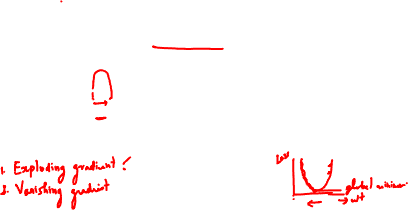 1. Exploding gradient!
2. Vanishing gradient
Loss
global minima
wt